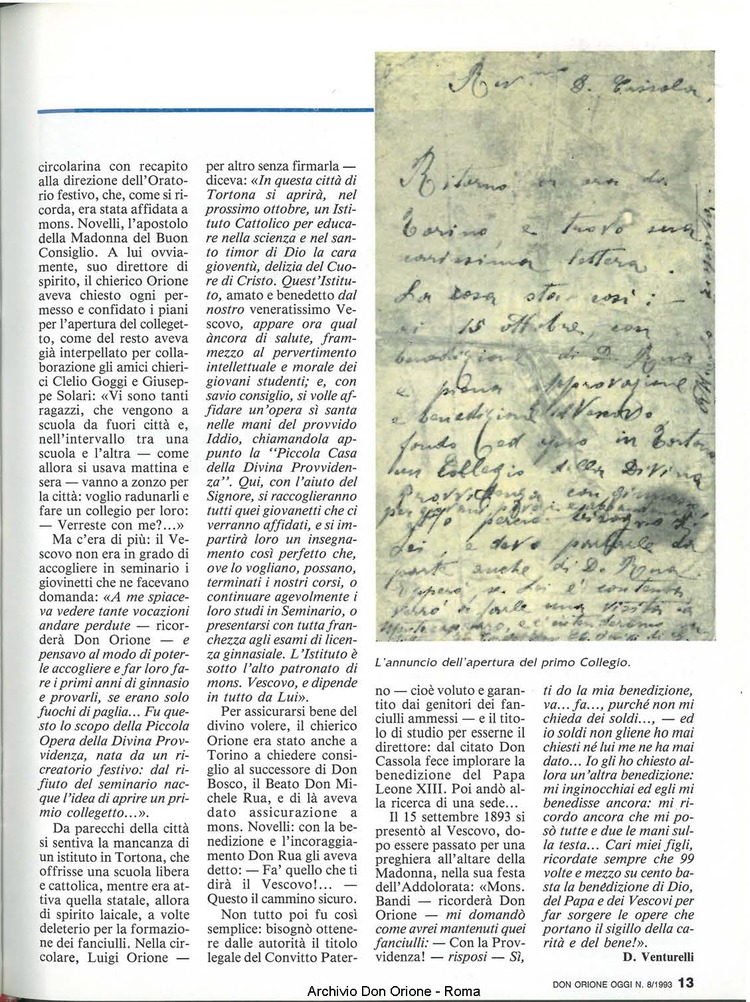 circolarina con recapito
alla direzione dell'Orato-
rio festivo, che, come si ri-
corda, era stata affidata a
mons. Novelli, l'apostolo
della Madonna del Buon
Consiglio. A lui ovvia-
mente, suo direttore di
spirito, il chierico Orione
aveva chiesto ogni per-
messo e confidato i piani
per l'apertura del colleget-
to, come del resto aveva
già interpellato per colla-
borazione gli amici chieri-
ci Clelio Goggi e Giusep-
pe Solari: «Vi sono tanti
ragazzi, che vengono a
scuola da fuori città e,
nell'intervallo tra una
scuola e l'altra — come
allora si usava mattina e
sera — vanno a zonzo per
la città: voglio radunarli e
fare un collegio per loro:
— Verreste con me?...»
Ma c'era di più: il Ve-
scovo non era in grado di
accogliere in seminario i
giovinetti che ne facevano
domanda: «A me spiace-
va vedere tante vocazioni
andare perdute — ricor-
derà Don Orione — e
pensavo al modo di poter-
le accogliere e far loro fa-
re i primi anni di ginnasio
e provarli, se erano solo
fuochi di paglia... Fu que-
sto lo scopo della Piccola
Opera della Divina Prov-
videnza, nata da un ri-
creatorio festivo: dal ri-
fiuto del seminario nac-
que l'idea di aprire un pri-
mio collegetto...».
Da parecchi della città
si sentiva la mancanza di
un istituto in Tortona, che
offrisse una scuola libera
e cattolica, mentre era at-
tiva quella statale, allora
di spirito laicale, a volte
deleterio per la formazio-
ne dei fanciulli. Nella cir-
colare, Luigi Orione —
per altro senza firmarla —
diceva: «In questa città di
Tortona si aprirà, nel
prossimo ottobre, un Isti-
tuto Cattolico per educa-
re nella scienza e nel san-
to timor di Dio la cara
gioventù, delizia del Cuo-
re di Cristo. Quest'Istitu-
to, amato e benedetto dal
nostro veneratissimo Ve-
scovo, appare ora qual
àncora di salute, fram-
mezzo al pervertimento
intellettuale e morale dei
giovani studenti; e, con
savio consiglio, si volle af-
fidare un'opera sì santa
nelle mani del provvido
Iddio, chiamandola ap-
punto la "Piccola Casa
della Divina Provviden-
za". Qui, con l'aiuto del
Signore, si raccoglieranno
tutti quei giovanetti che ci
verranno affidati, e si im-
partirà loro un insegna-
mento così perfetto che,
ove lo vogliano, possano,
terminati i nostri corsi, o
continuare agevolmente i
loro studi in Seminario, o
presentarsi con tutta fran-
chezza agli esami di licen-
za ginnasiale. L'Istituto è
sotto l'alto patronato di
mons. Vescovo, e dipende
in tutto da Lui».
Per assicurarsi bene del
divino volere, il chierico
Orione era stato anche a
Torino a chiedere consi-
glio al successore di Don
Bosco, il Beato Don Mi-
chele Rua, e di là aveva
dato assicurazione a
mons. Novelli: con la be-
nedizione e l'incoraggia-
mento Don Rua gli aveva
detto: — Fa' quello che ti
dirà il Vescovo!... —
Questo il cammino sicuro.
Non tutto poi fu così
semplice: bisognò ottene-
re dalle autorità il titolo
legale del Convitto Pater-
D. Cassola,
Ritorno or ora da
Torino e trovo sua
carissima lettera.
La cosa sta così:
15 ottobre, con
benedizione di D. Rua
e piena approvazione
e benedizione
fondo in Tortona
un Collegio della Divina
Provvidenza
L'annuncio dell'apertura del primo Collegio.
no — cioè voluto e garan-
tito dai genitori dei fan-
ciulli ammessi — e il tito-
lo di studio per esserne il
direttore: dal citato Don
Cassola fece implorare la
benedizione del Papa
Leone XIII. Poi andò al-
la ricerca di una sede...
Il 15 settembre 1893 si
presentò al Vescovo, do-
po essere passato per una
preghiera all'altare della
Madonna, nella sua festa
dell'Addolorata: «Mons.
Bandi — ricorderà Don
Orione — mi domandò
come avrei mantenuti quei
fanciulli: — Con la Prov-
videnza! — risposi — Sì,
ti do la mia benedizione,
va... fa..., purché non mi
chieda dei soldi..., — ed
io soldi non gliene ho mai
chiesti né lui me ne ha mai
dato... Io gli ho chiesto al-
lora un'altra benedizione:
mi inginocchiai ed egli mi
benedisse ancora: mi ri-
cordo ancora che mi po-
sò tutte e due le mani sul-
la testa... Cari miei figli,
ricordate sempre che 99
volte e mezzo su cento ba-
sta la benedizione di Dio,
del Papa e dei Vescovi per
far sorgere le opere che
portano il sigillo della ca-
rità e del bene!».
D. Venturelli
DON ORIONE OGGI N. 8/1993 13
Archivio Don Orione - Roma